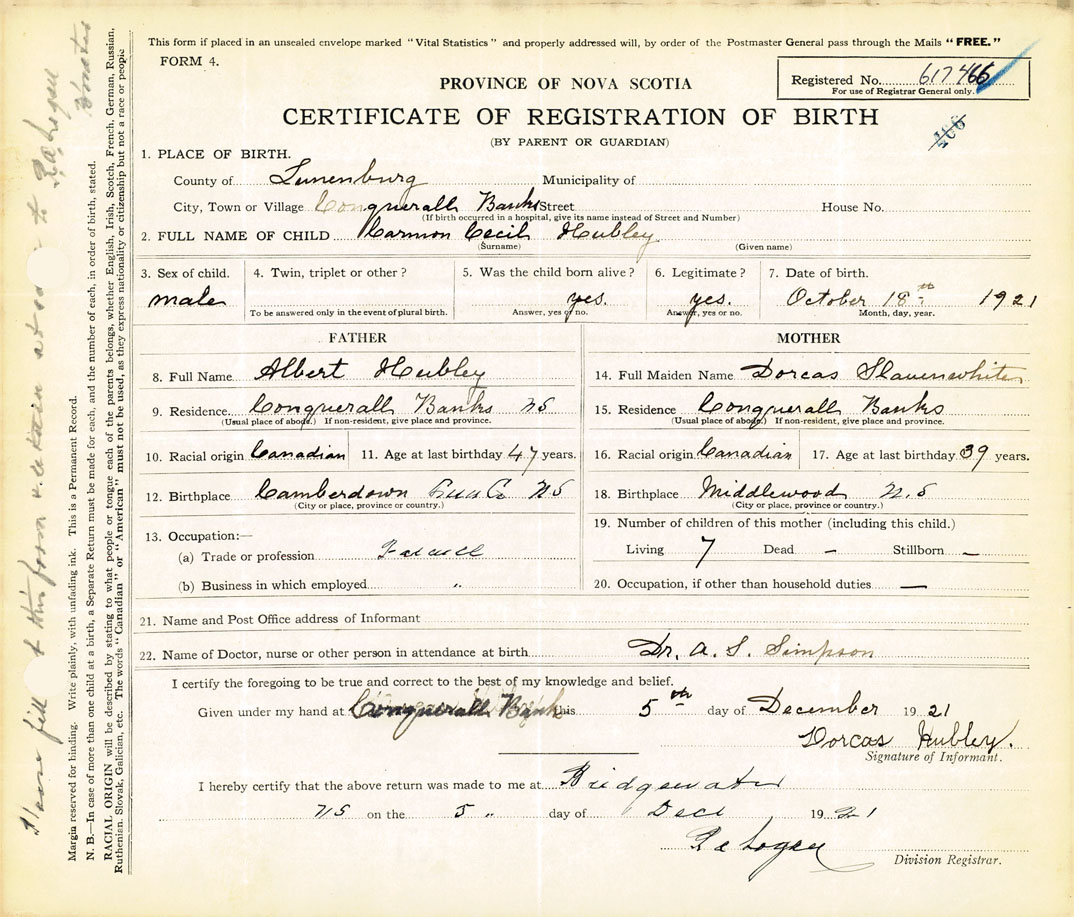 This form if placed in an unsealed envelope marked "Vital Statistics" and properly addressed will, by order of the Postmaster General pass through the Mails "FREE."
FORM 4.
Registered No. 617466
For use of Registrar General only.
PROVINCE OF NOVA SCOTIA
CERTIFICATE OF REGISTRATION OF BIRTH
466
(BY PARENT OR GUARDIAN)
1. PLACE OF BIRTH.
County of Lunenburg Municipality of
City, Town or Village Conquerall Banks Street House No.
(If birth occurred in a hospital, give its name instead of Street and Number)
2. FULL NAME OF CHILD Carmon Cecil Hubley
(Surname) (Given name)
3. Sex of child. 4. Twin, triplet or other? 5. Was the child born alive? 6. Legitimate? 7. Date of birth.
male yes. yes. October 18th 1921
To be answered only in the event of plural birth. Answer, yes or no. Answer, yes or no. Month, day, year.
FATHER MOTHER
8. Full Name Albert Hubley 14. Full Maiden Name Dorcas Slauenwhite
9. Residence Conquerall Banks NS 15. Residence Conquerall Banks
(Usual place of abode.) If non-resident, give place and province. (Usual place of abode.) If non-resident, give place and province.
10. Racial origin Canadian 11. Age at last birthday 47 years. 16. Racial origin Canadian 17. Age at last birthday 39 years.
12. Birthplace Camberdown Co NS 18. Birthplace Middlewood N.S
(City or place, province or country.) (City or place, province or country.)
19. Number of children of this mother (including this child.)
13. Occupation:—
(a) Trade or profession
Living 7 Dead – Stillborn –
(b) Business in which employed " 20. Occupation, if other than household duties —
21. Name and Post Office address of Informant
22. Name of Doctor, nurse or other person in attendance at birth Dr. A. S. Simpson
I certify the foregoing to be true and correct to the best of my knowledge and belief.
Given under my hand at Conquerall Bank this 5th day of December 1921
Dorcas Hubley.
Signature of Informant.
I hereby certify that the above return was made to me at Bridgewater
NS on the 5 " day of Dec 1921
Division Registrar.
Please fill this form & return to
Margin reserved for binding. Write plainly, with unfading ink. This is a Permanent Record.
N. B.—In case of more than one child at a birth, a Separate Return must be made for each, and the number of each, in order of birth, stated.
RACIAL ORIGIN will be described by stating to what people or tongue each of the parents belongs, whether English, Irish, Scotch, French, German, Russian,
Ruthenian, Slovak, Galician, etc. The words "Canadian" or "American" must not be used, as they express nationality or citizenship but not a race or people